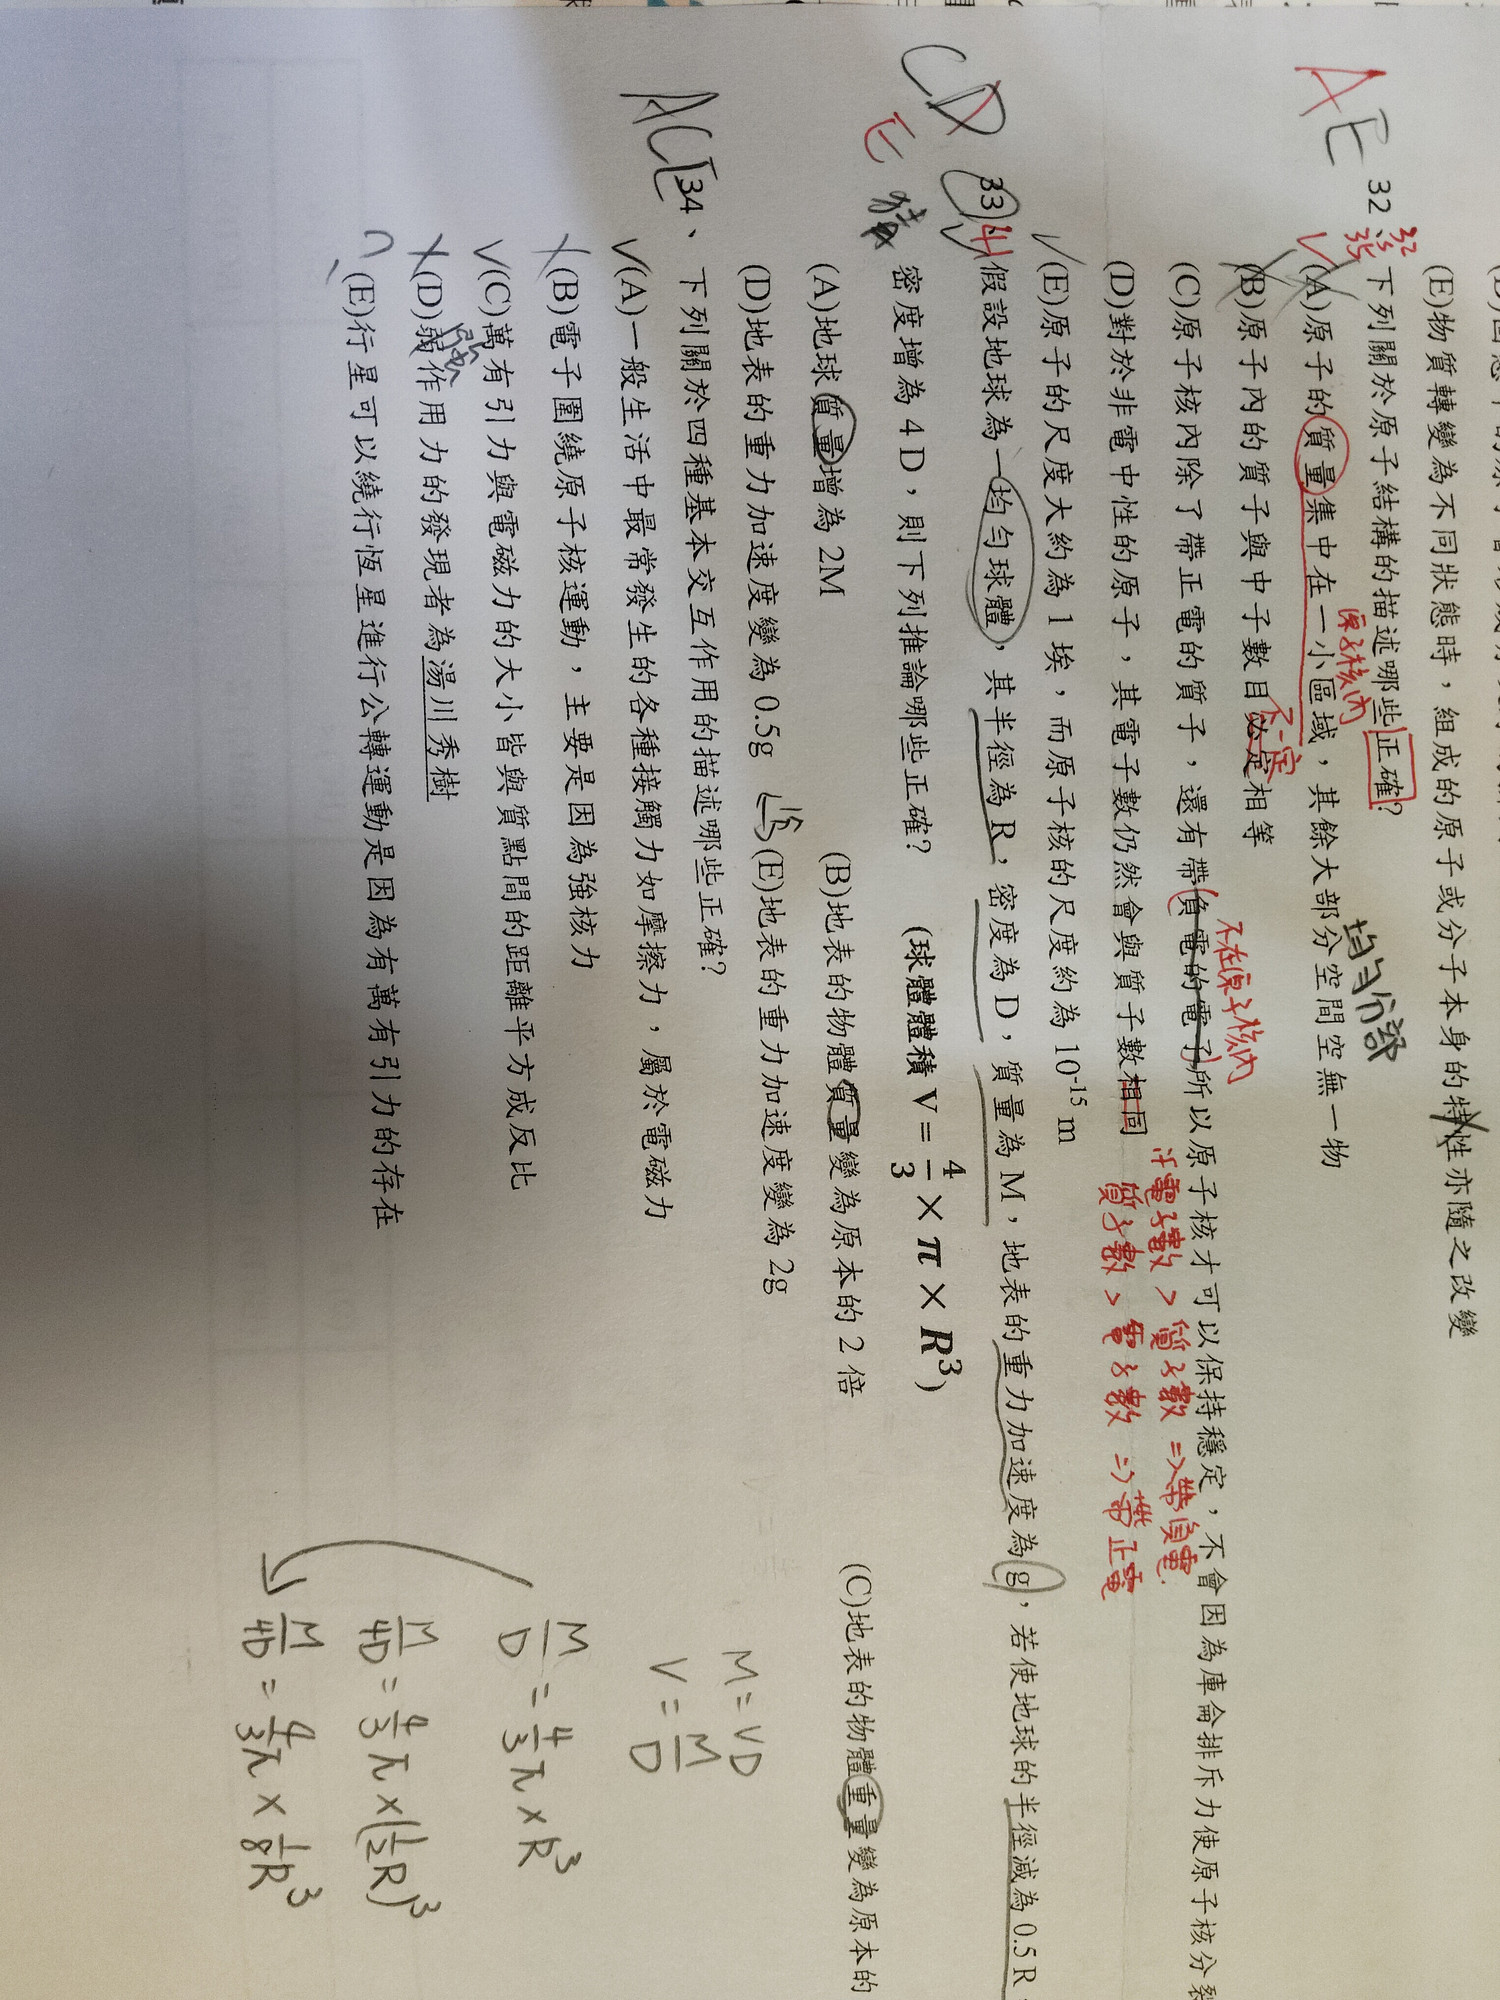 (E)物質轉變為不同狀態時，組成的原子或分子本身的特性亦隨之改變
AE
32
35
32、下列關於原子結構的描述哪些正確?
均勻分部
原子核內
(A)原子的質量集中在一小區域，其餘大部分空間空無一物
不一定
(B)原子內的質子與中子數目必定相等
不在原子核內
(C)原子核內除了帶正電的質子，還有帶負電的電子，所以原子核才可以保持穩定，不會因為庫侖排斥力使原子核分裂
(D)對於非電中性的原子，其電子數仍然會與質子數相同
電子數 > 質子數 => 帶負電.
質子數 > 電子數 => 帶正電
(E)原子的尺度大約為 1 埃，而原子核的尺度約為 10⁻¹⁵ m
CD
E
猜
33、假設地球為一均勻球體，其半徑為 R，密度為 D，質量為 M，地表的重力加速度為 g，若使地球的半徑減為 0.5 R
密度增為 4 D，則下列推論哪些正確? (球體體積 V = 4/3 × π × R³)
(A)地球質量增為 2M (B)地表的物體質量變為原本的 2 倍 (C)地表的物體重量變為原本的
(D)地表的重力加速度變為 0.5g (E)地表的重力加速度變為 2g
ACE
34、下列關於四種基本交互作用的描述哪些正確?
(A)一般生活中最常發生的各種接觸力如摩擦力，屬於電磁力
(B)電子圍繞原子核運動，主要是因為強核力
(C)萬有引力與電磁力的大小皆與質點間的距離平方成反比
強
(D)弱作用力的發現者為湯川秀樹
(E)行星可以繞行恆星進行公轉運動是因為有萬有引力的存在
M = VD
V = M/D
M/D = 4/3 π × R³
M/4D = 4/3 π × (1/2 R)³
M/4D = 4/3 π × 1/8 R³